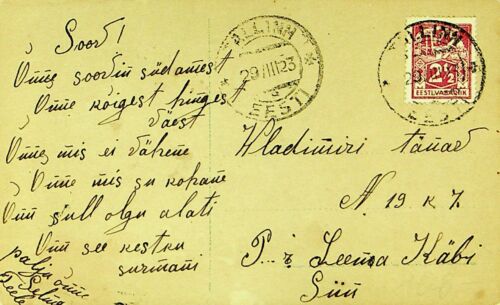 Soov!
Õnne soovin südamest
Õnne kõigest hingest
väest
Õnne mis ei vähene
Õnne mis su kohane
Õnn sull olgu alati
Õnn see kestku
surmani
palju õnne
TALLINN
29 III 23
EESTI
TALLINN
2½
EESTI VABARIIK
EESTI
Wladimiri tänav
N. 19. k 7.
P. r. Leena Käbi
Siin